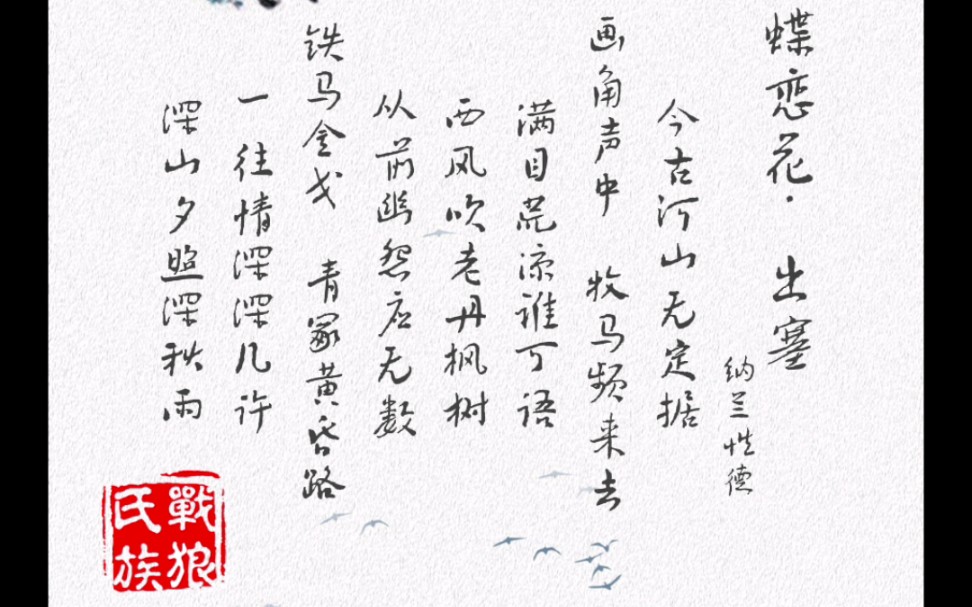 蝶恋花·出塞
纳兰性德
今古河山无定据
画角声中 牧马频来去
满目荒凉谁可语
西风吹老丹枫树
从前幽怨应无数
铁马金戈 青冢黄昏路
一往情深深几许
深山夕照深秋雨
戰狼
氏族